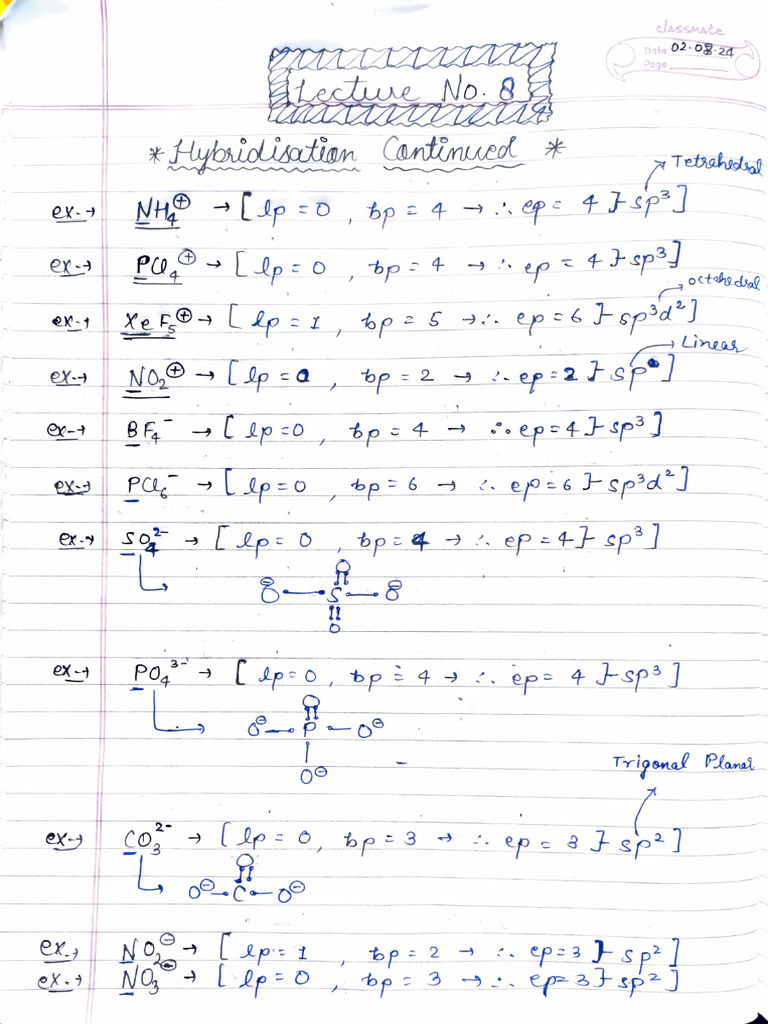 classmate
Date 02.08.24
Page
Lecture No. 8
* Hybridisation Continued *
Tetrahedral
ex.→ NH₄⊕ → [ lp = 0 , bp = 4 → ∴ ep = 4 }- sp³ ]
ex.→ PCl₄⊕ → [ lp = 0 , bp = 4 → ∴ ep = 4 }- sp³ ]
octahedral
ex.→ XeF₅⊕ → [ lp = 1 , bp = 5 → ∴ ep = 6 }- sp³d² ]
Linear
ex.→ NO₂⊕ → [ lp = 0 , bp = 2 → ∴ ep = 2 }- sp ]
ex.→ BF₄⁻ → [ lp = 0 , bp = 4 → ∴ ep = 4 }- sp³ ]
ex.→ PCl₆⁻ → [ lp = 0 , bp = 6 → ∴ ep = 6 }- sp³d² ]
ex.→ SO₄²⁻ → [ lp = 0 , bp = 4 → ∴ ep = 4 }- sp³ ]
O
O⊖ — S — O⊖
O
ex.→ PO₄³⁻ → [ lp = 0 , bp = 4 → ∴ ep = 4 }- sp³ ]
O
O⊖ — P — O⊖
O⊖
Trigonal Planar
ex.→ CO₃²⁻ → [ lp = 0 , bp = 3 → ∴ ep = 3 }- sp² ]
O
O⊖ — C — O⊖
ex. NO₂⊖ → [ lp = 1 , bp = 2 → ∴ ep = 3 }- sp² ]
ex.→ NO₃⊖ → [ lp = 0 , bp = 3 → ∴ ep = 3 }- sp² ]